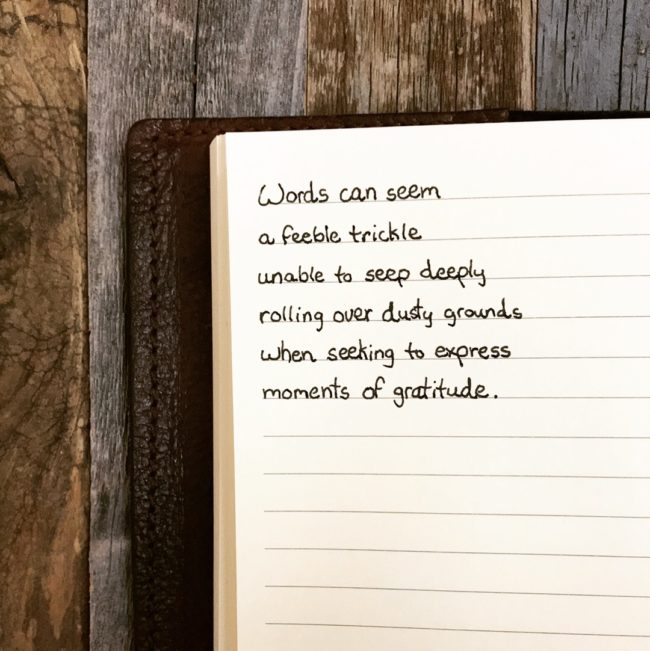 Words can seem
a feeble trickle
unable to seep deeply
rolling over dusty grounds
when seeking to express
moments of gratitude.